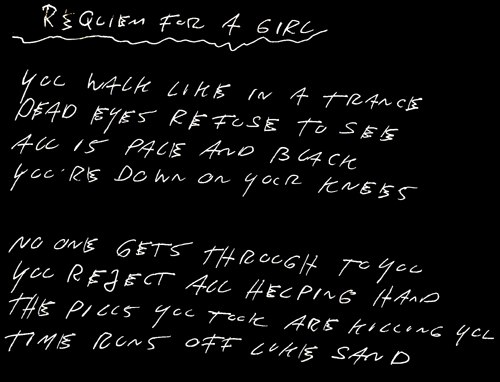 REQUIEM FOR A GIRL
YOU WALK LIKE IN A TRANCE
DEAD EYES REFUSE TO SEE
ALL IS PALE AND BLACK
YOU'RE DOWN ON YOUR KNEES
NO ONE GETS THROUGH TO YOU
YOU REJECT ALL HELPING HAND
THE PILLS YOU TOOK ARE KILLING YOU
TIME RUNS OFF LIKE SAND